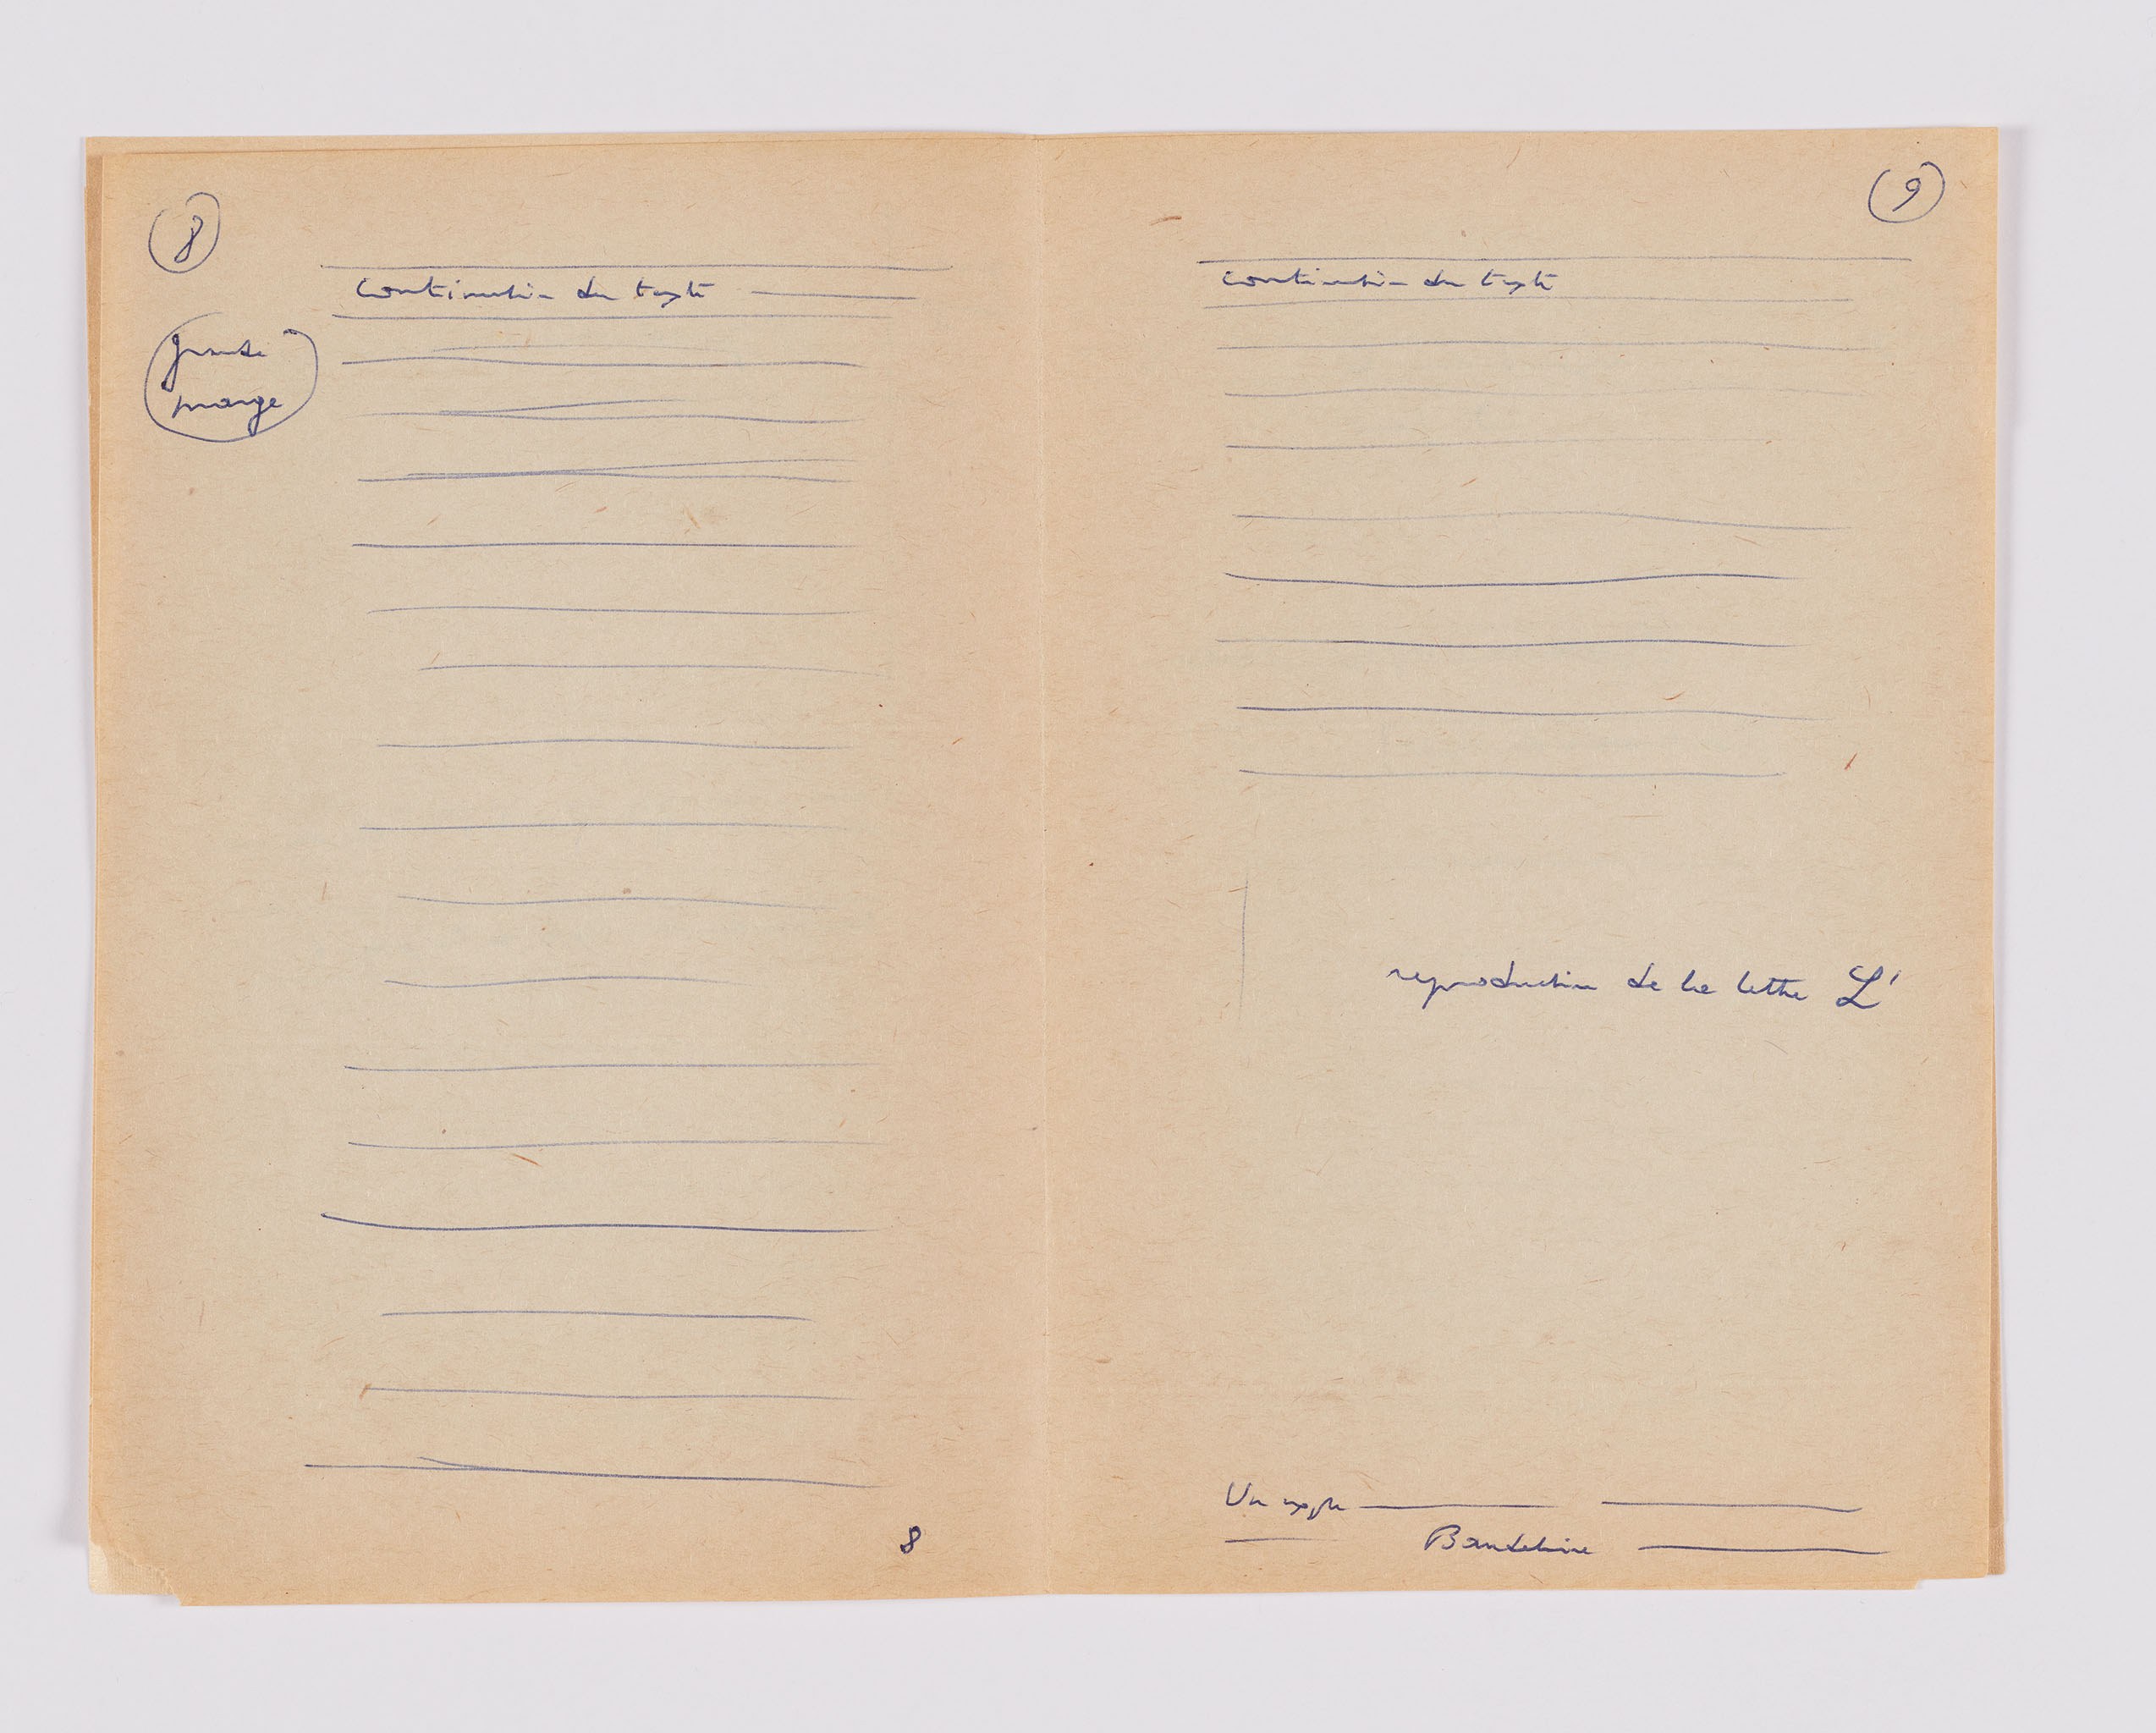 8
continuation du texte
grande
marge
8
9
continuation du texte
reproduction de la lettre L'
Un
Baudelaire